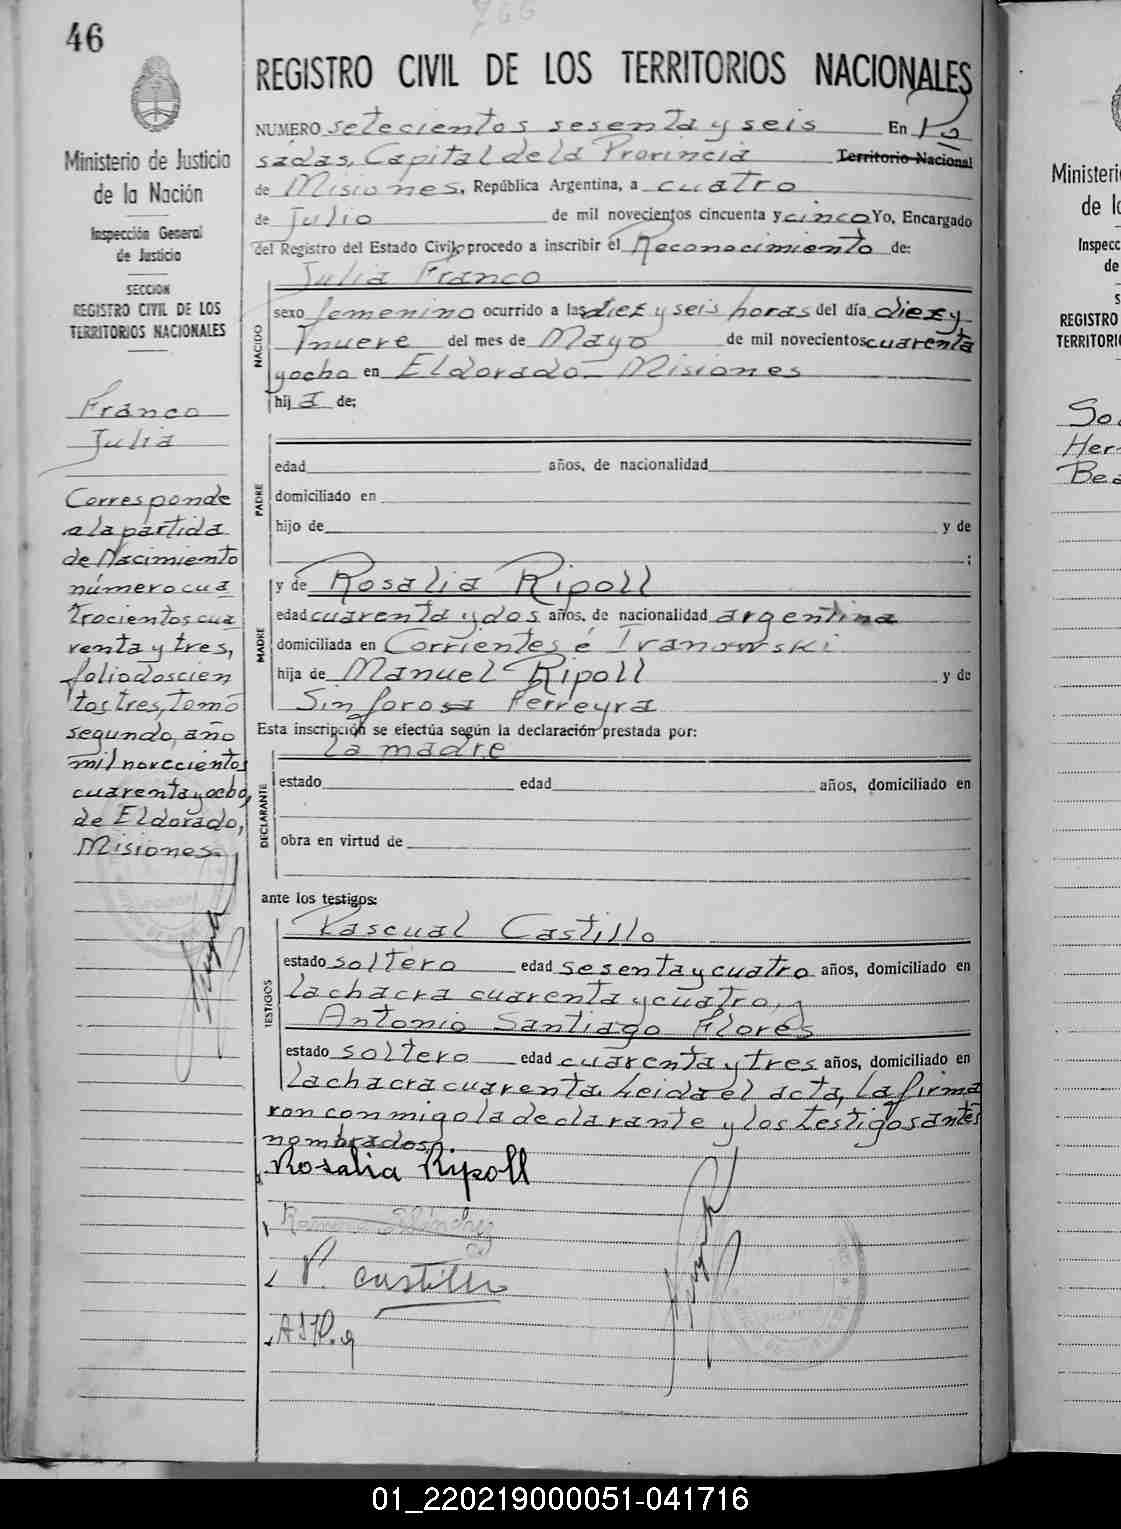 766
46
Ministerio de Justicia
de la Nación
Inspección General
de Justicia
SECCION
REGISTRO CIVIL DE LOS
TERRITORIOS NACIONALES
Franco
Julia
Corresponde
a la partida
de Nacimiento
número cua
trocientos cua
renta y tres,
folio doscien
tos tres, tomo
segundo, año
mil novecientos
cuarenta y ocho,
de Eldorado,
Misiones.
REGISTRO CIVIL DE LOS TERRITORIOS NACIONALES
NUMERO setecientos sesenta y seis En Po
sadas, Capital de la Provincia Territorio Nacional
de Misiones, República Argentina, a cuatro
de Julio de mil novecientos cincuenta y cinco Yo, Encargado
del Registro del Estado Civil, procedo a inscribir el Reconocimiento de:
Julia Franco
NACIDO
sexo femenino ocurrido a las diez y seis horas del día diez y
nueve del mes de Mayo de mil novecientos cuarenta
y ocho en Eldorado - Misiones
hij a de;
PADRE
edad años, de nacionalidad
domiciliado en
hijo de y de
;
MADRE
y de Rosalia Ripoll
edad cuarenta y dos años, de nacionalidad argentina
domiciliada en Corrientes é Ivanowski
hija de Manuel Ripoll y de
Sinforosa Ferreyra
Esta inscripción se efectúa según la declaración prestada por:
la madre
DECLARANTE
estado edad años, domiciliado en
obra en virtud de
ante los testigos:
TESTIGOS
Pascual Castillo
estado soltero edad sesenta y cuatro años, domiciliado en
la chacra cuarenta y cuatro, y
Antonio Santiago Flores
estado soltero edad cuarenta y tres años, domiciliado en
la chacra cuarenta. Leida el acta, la firma
ron conmigo la declarante y los testigos antes
nombrados.
Rosalia Ripoll
P. Castillo
Ministeri
de la
Inspecc
de
S
REGISTRO
TERRITORI
Her
Bea
01_220219000051-041716